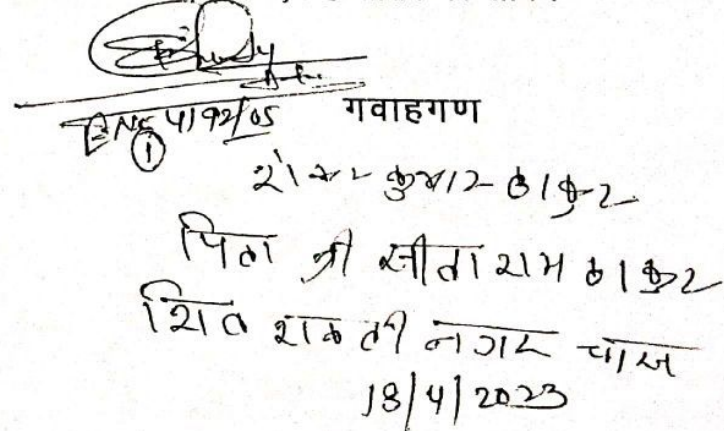 ENC 4192/05 गवाहगण
①
शंकर कुमार ठाकुर
पिता श्री सीता राम ठाकुर
शिव शक्ती नगर चास
18/4/2023